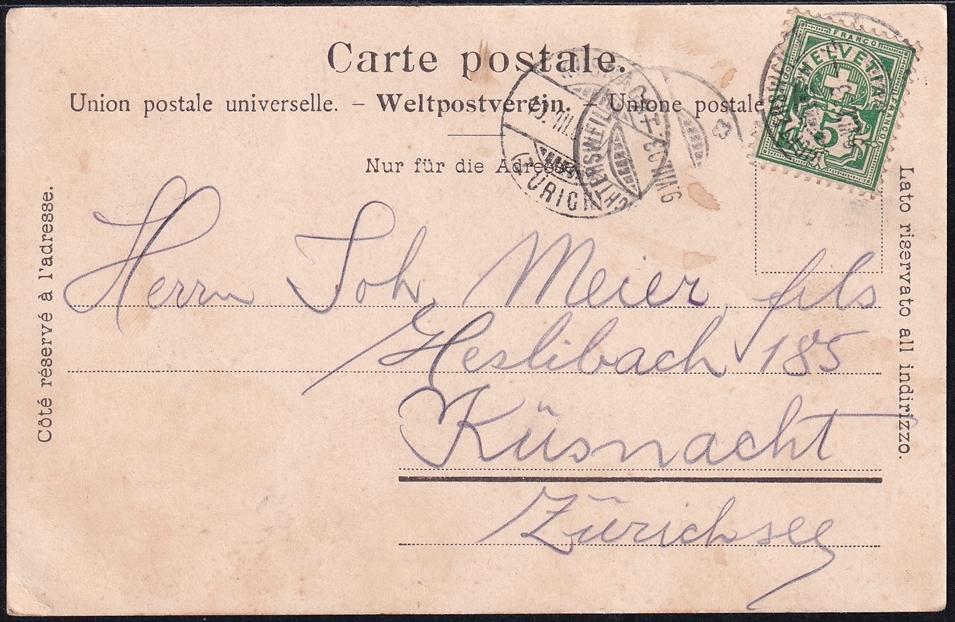 Carte postale.
Union postale universelle. – Weltpostverein. – Unione postale
Nur für die Adresse
Côté réservé à l'adresse.
Lato riservato all indirizzo.
FRANCO
HELVETIA
5
ZÜRICH
Herrn Joh. Meier, fils
Heslibach 185
Küsnacht
Zürichsee